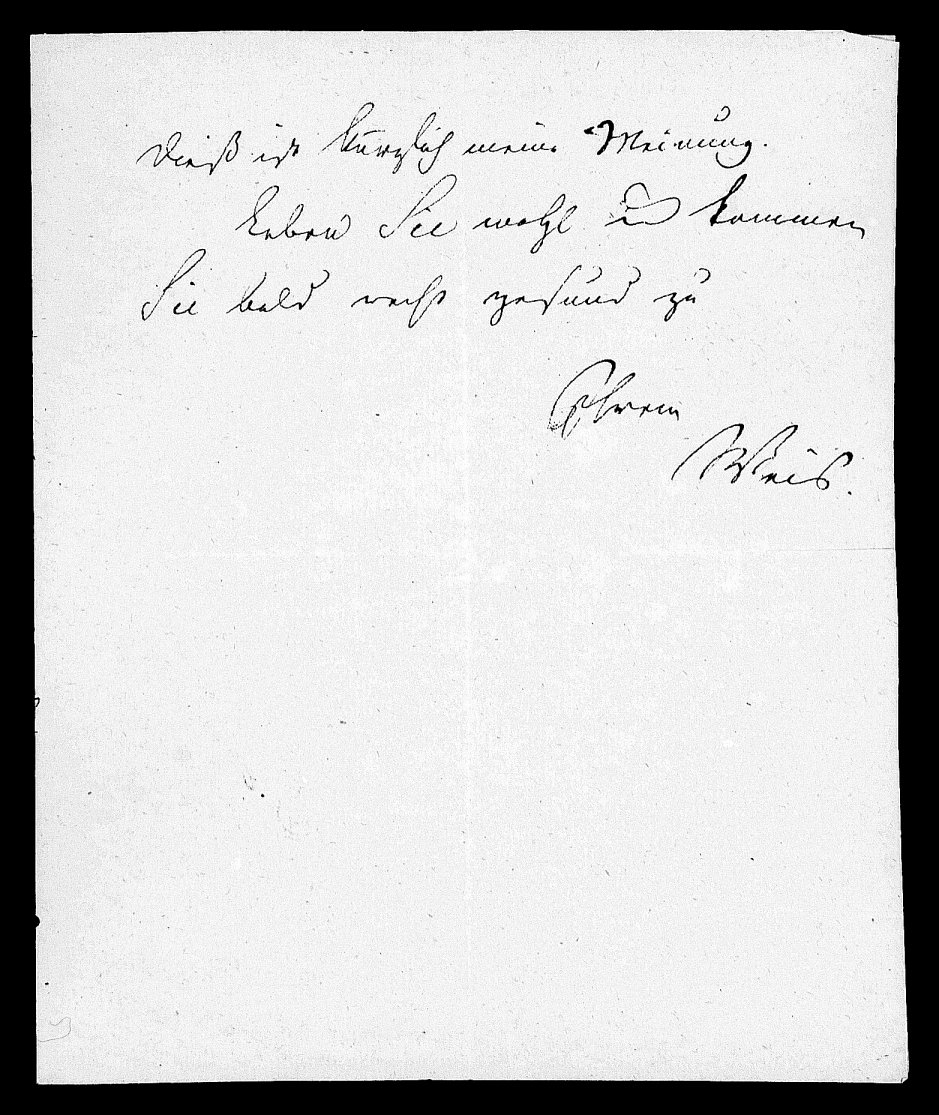 Dieß ist kürzlich meine Meinung.
Leben Sie wohl u kommen
Sie bald recht gesund zu
Ihrem
Weis.